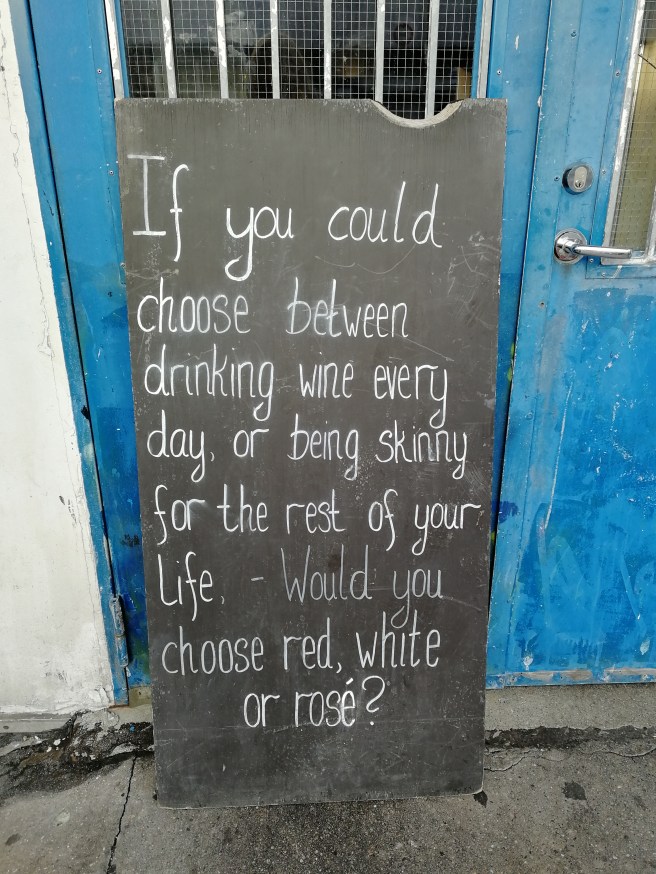 If you could
choose between
drinking wine every
day, or being skinny
for the rest of your
Life, - Would you
choose red, white
or rosé?